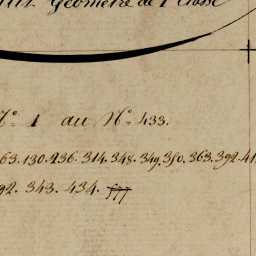 Géomètre de 1 Classe
N.º 1 au N.º 433.
63. 130. 236. 314. 348. 349. 350. 363. 392. 41
92. 343. 434.